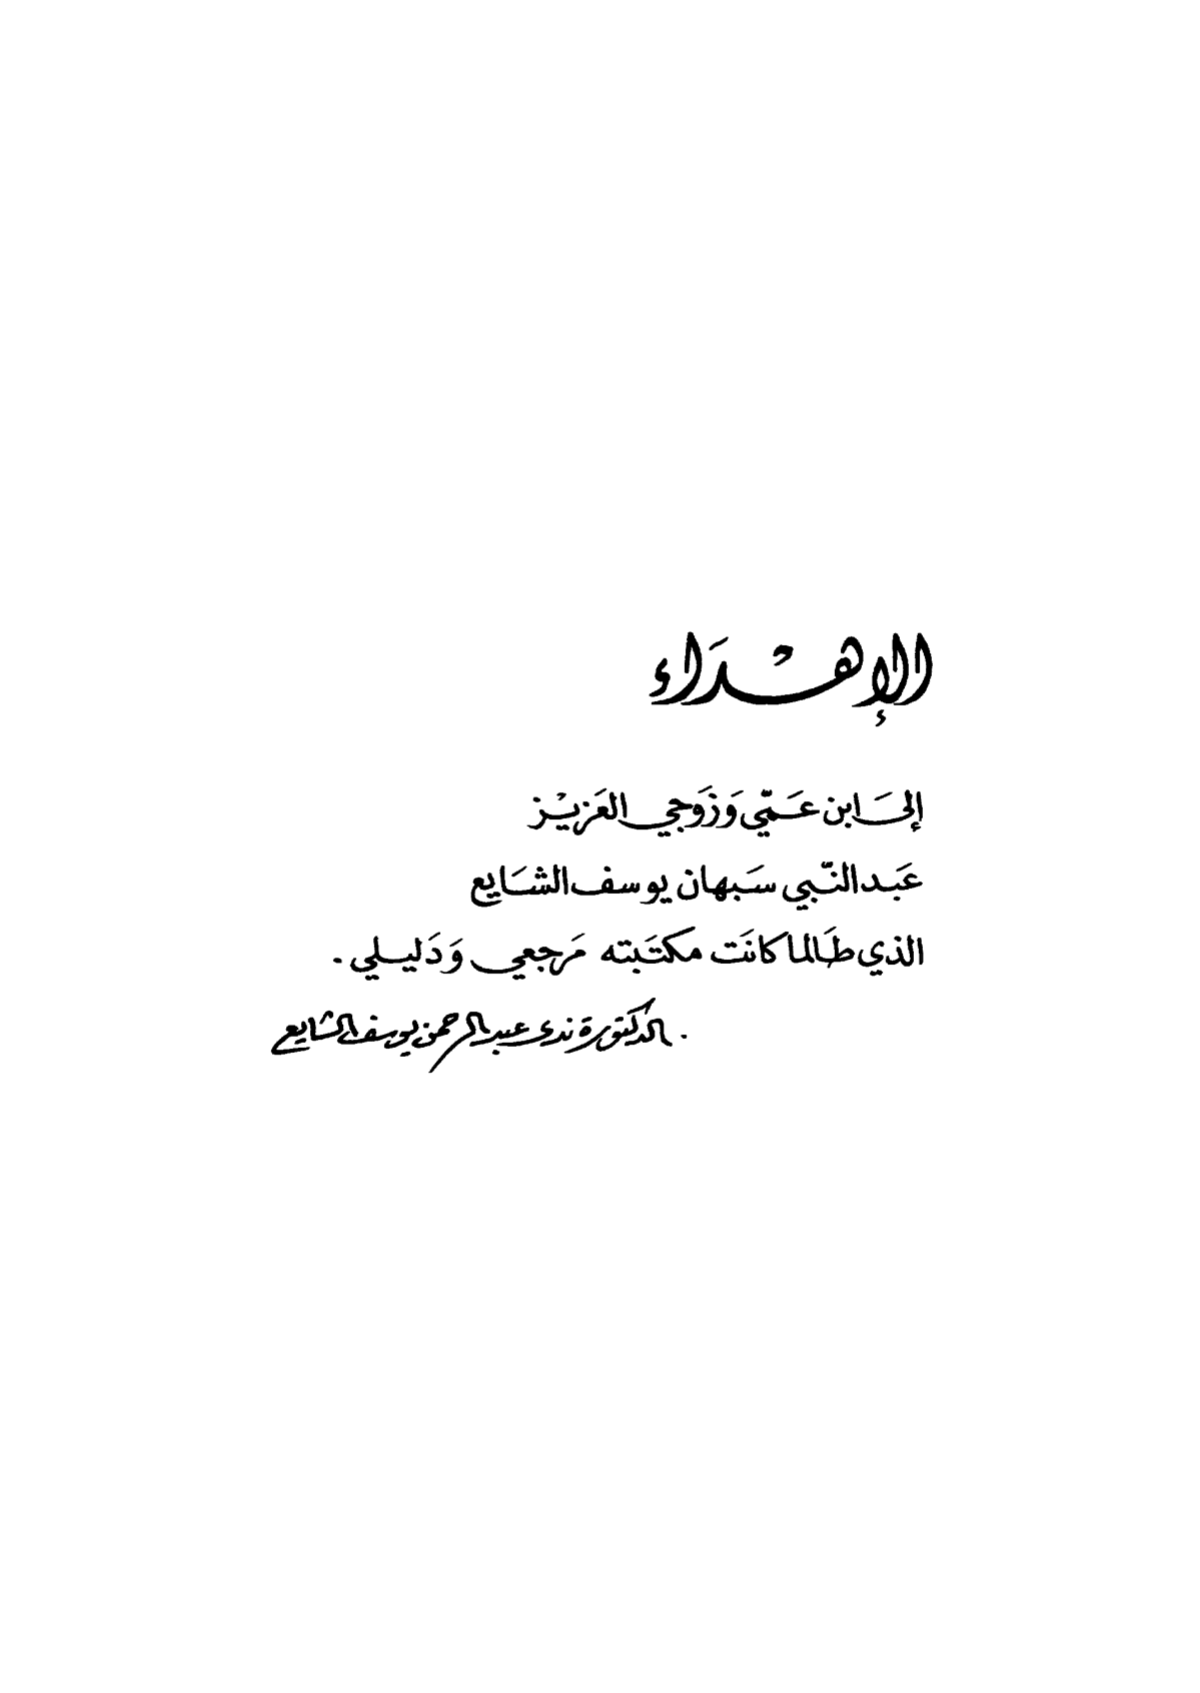 الإهْدَاء
إلىَ ابن عَمّي وَزَوجي العَزيْز
عَبد النّبي سَبهان يوسف الشَايع
الذي طَالما كانَت مكتَبته مَرجعي وَدَليلي .
. الدكتورة ندى عبد الرحمن يوسف الشايع